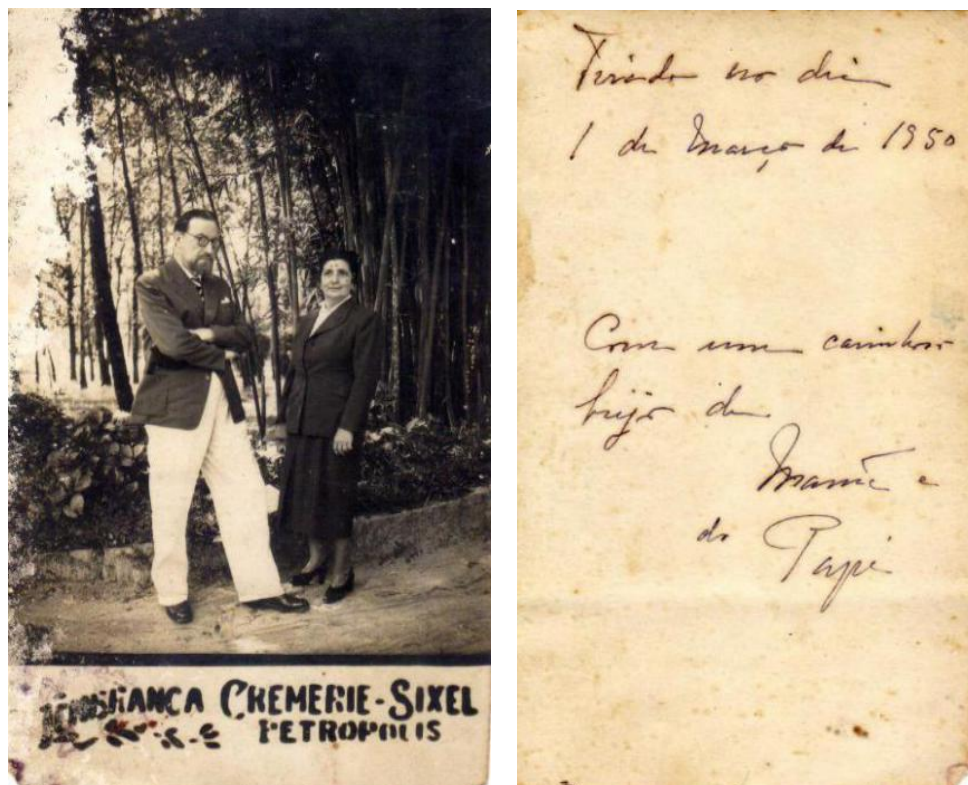 CREMERIE-SIXEL
PETROPOLIS
Tirada no dia
1 de Março de 1950
Com um carinhoso
beijo de
Mamãe e
do Papi